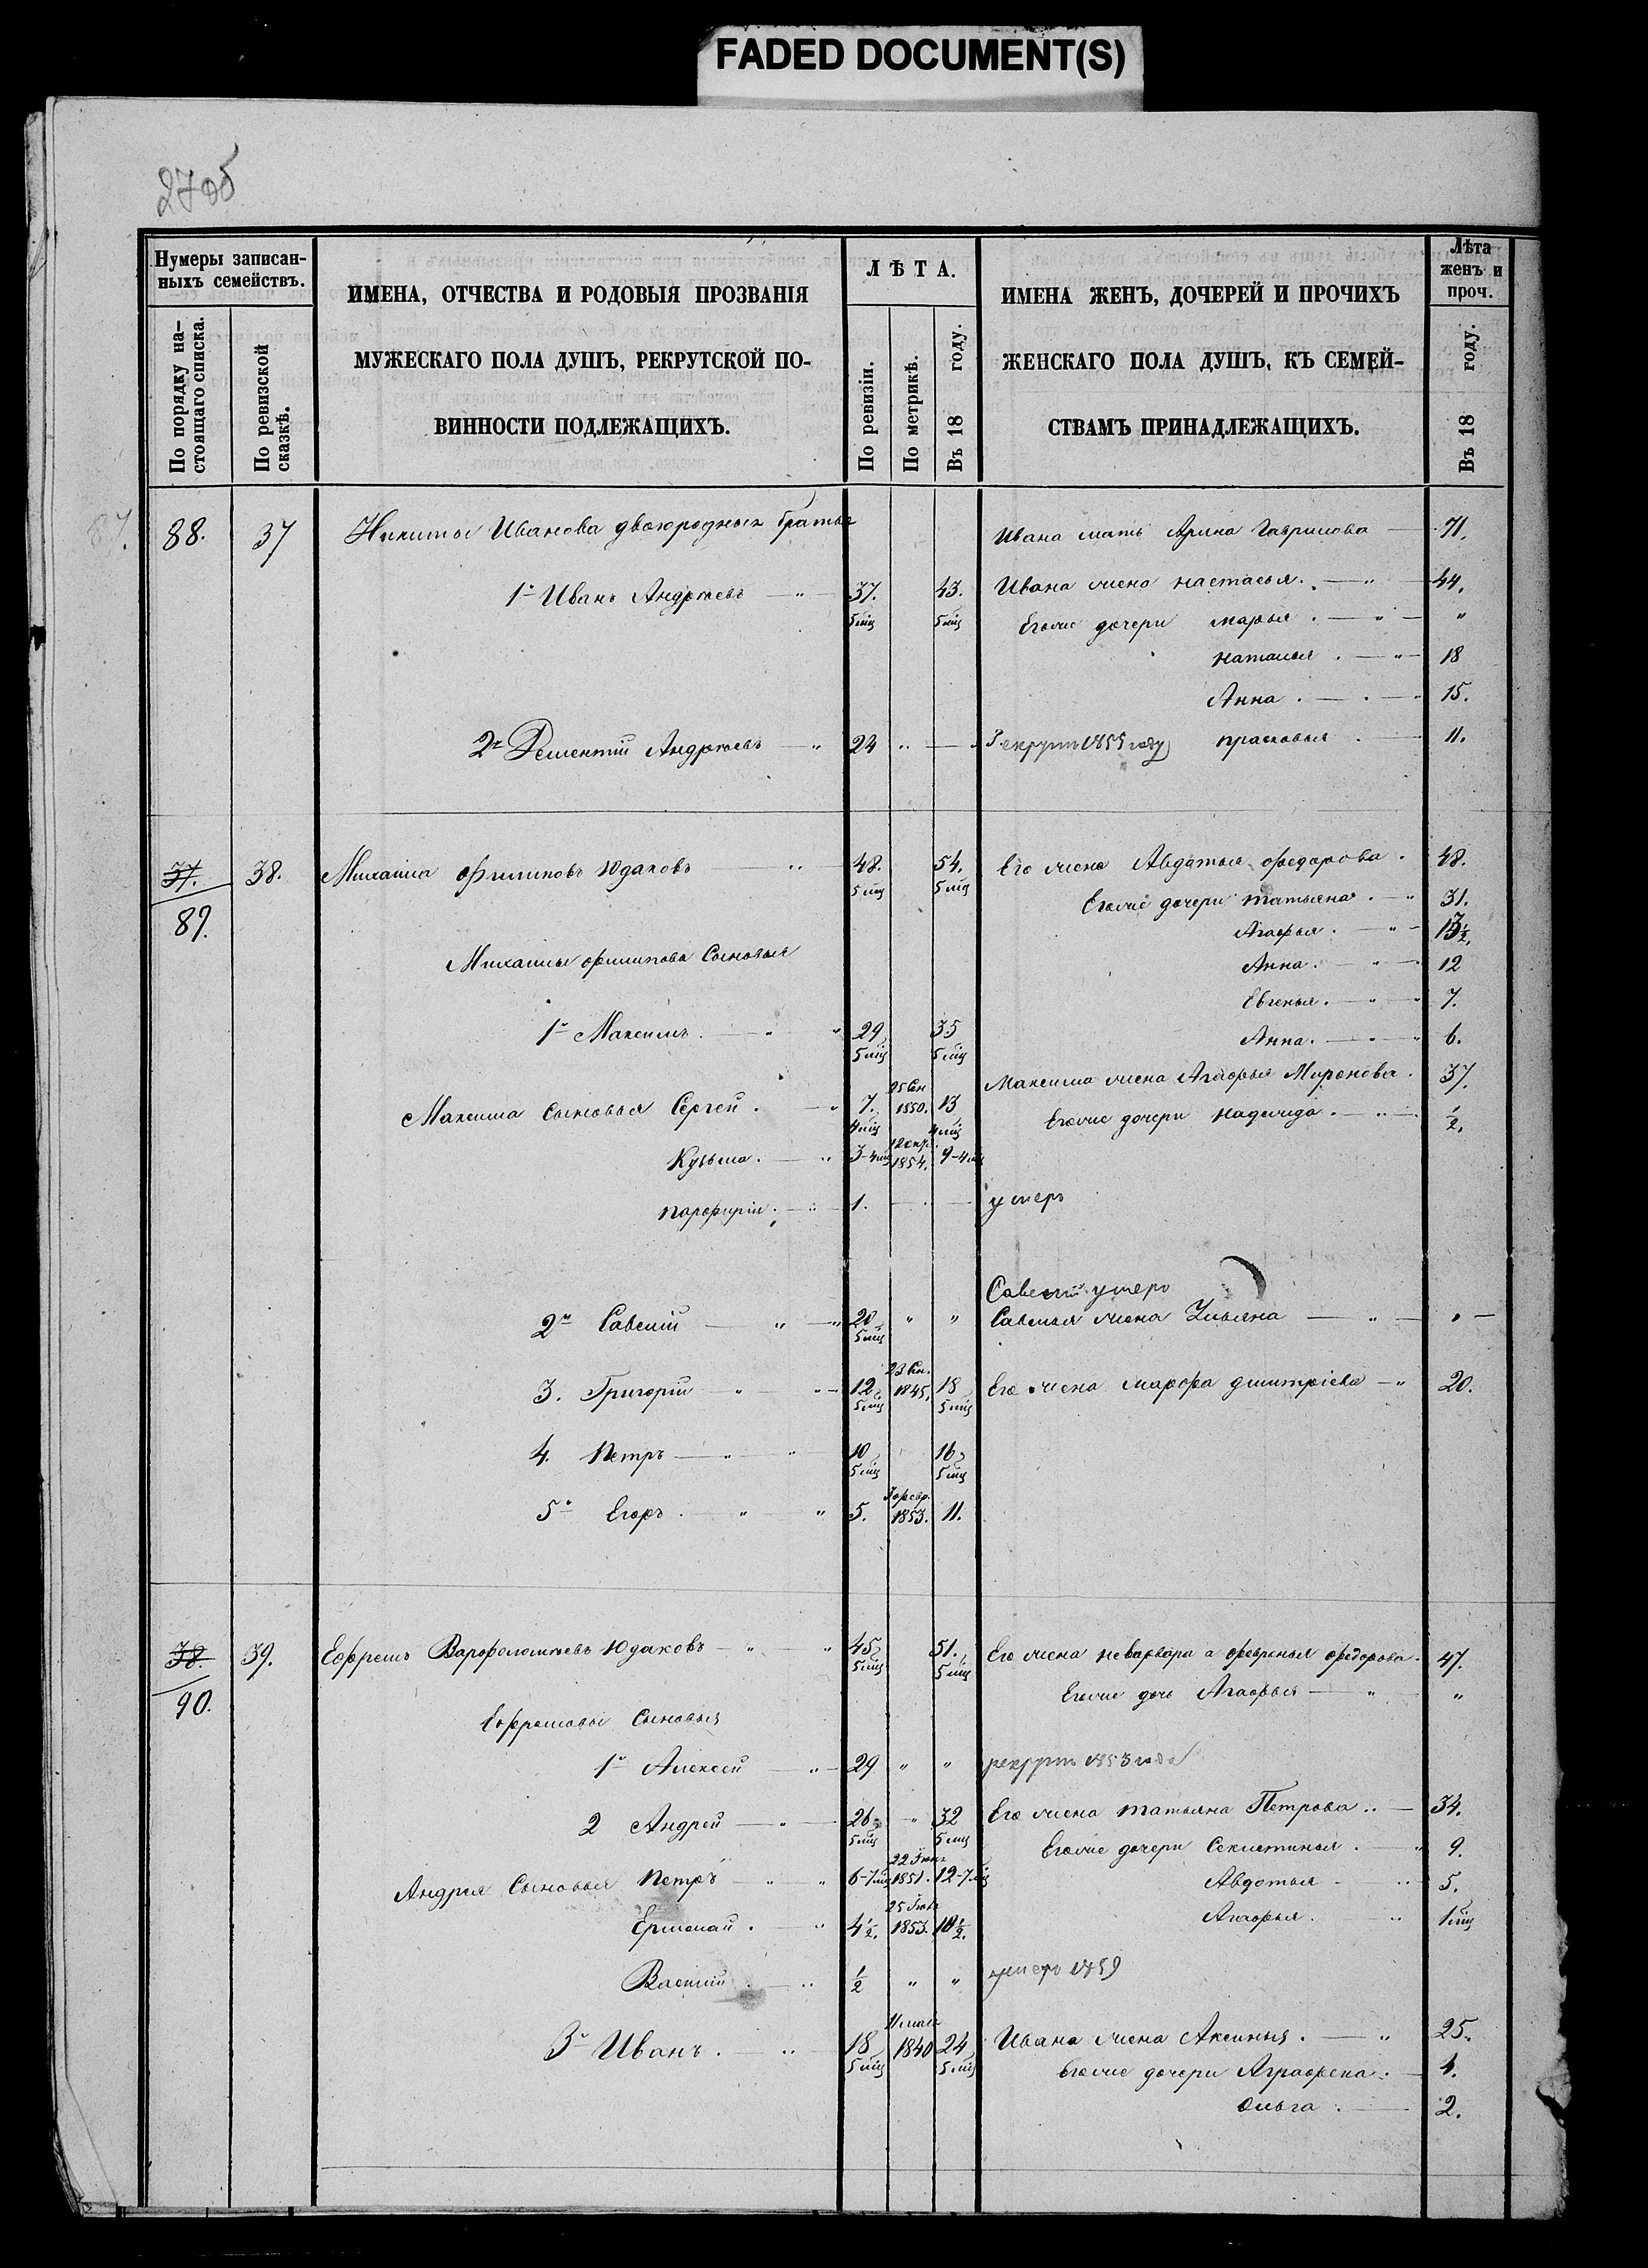 FADED DOCUMENT(S)
27 об
Нумеры записан-
ныхъ семействъ.
По порядку на-
стоящаго списка.
По ревизской
сказкѣ.
ИМЕНА, ОТЧЕСТВА И РОДОВЫЯ ПРОЗВАНІЯ
МУЖЕСКАГО ПОЛА ДУШЪ, РЕКРУТСКОЙ ПО-
ВИННОСТИ ПОДЛЕЖАЩИХЪ.
ЛѢТА.
По ревизіи.
По метрикѣ.
Въ 18 году.
ИМЕНА ЖЕНЪ, ДОЧЕРЕЙ И ПРОЧИХЪ
ЖЕНСКАГО ПОЛА ДУШЪ, КЪ СЕМЕЙ-
СТВАМЪ ПРИНАДЛЕЖАЩИХЪ.
Лѣта
женъ и
проч.
Въ 18 году.
87.
88. 37 Никиты Иванова двоюродныхъ братья Ивана мать Арина Гаврилова 71.
1й Иванъ Андреевъ 37. 5 мц 43. 5 мц Ивана жена Настасья 44.
Егоже дочери Марья "
Наталья 18
Анна 15.
2й Дементій Андреевъ 24 Рекрутъ 1855 году Прасковья 11.
37. 38. Михаила Филиповъ Юдаковъ 48. 5 мц 54. 5 мц Его жена Авдатья Федорова 48.
Егоже дочери Татьяна 31.
89. Агафья 13½
Михаилы Филипова Сыновья Анна 12
Евгенья 7.
1й Максимъ 29 5 мц 35 5 мц Анна 6.
Максима жена Агафья Миронова 37.
Максима Сыновья Сергей 7. 4 мц 25 Сен 1850. 13 4 мц Егоже дочери Надежда ½.
Кузьма 3-4 мц 1854. 9-4 мц
Парфирій 1. умеръ
Савелій умеръ
2й Савелій 20 5 мц " " Савелья жена Ульяна "
3. Григорій 12 5 мц 23 Сен. 1845. 18 5 мц Его жена Марфа Дмитріева 20.
4. Петръ 10 5 мц 16 5 мц
5й Егоръ 5. 1853. 11.
38. 39. Ефремъ Варфоломѣевъ Юдаковъ 45 5 мц 51. 5 мц Его жена неварвара а Февронья Федорова 47.
90. Егоже дочь Агафья "
Ефремовы Сыновья
1й Алексей 29 " " рекрутъ 1853 года
2 Андрей 26 5 мц " 32 5 мц Его жена Татьяна Петрова 34.
Егоже дочери Секлетинья 9.
Андрея Сыновья Петръ 6-7 мц 1851. 12-7 мц Авдотья 5.
Ермолай 4½. 1853. 10½. Агафья 1 мц
Василій ½ " " умеръ 1859
3й Иванъ 18 5 мц 11 мая 1840 24 5 мц Ивана жена Аксинья 25.
Егоже дочери Аграфена 4.
Ольга 2.